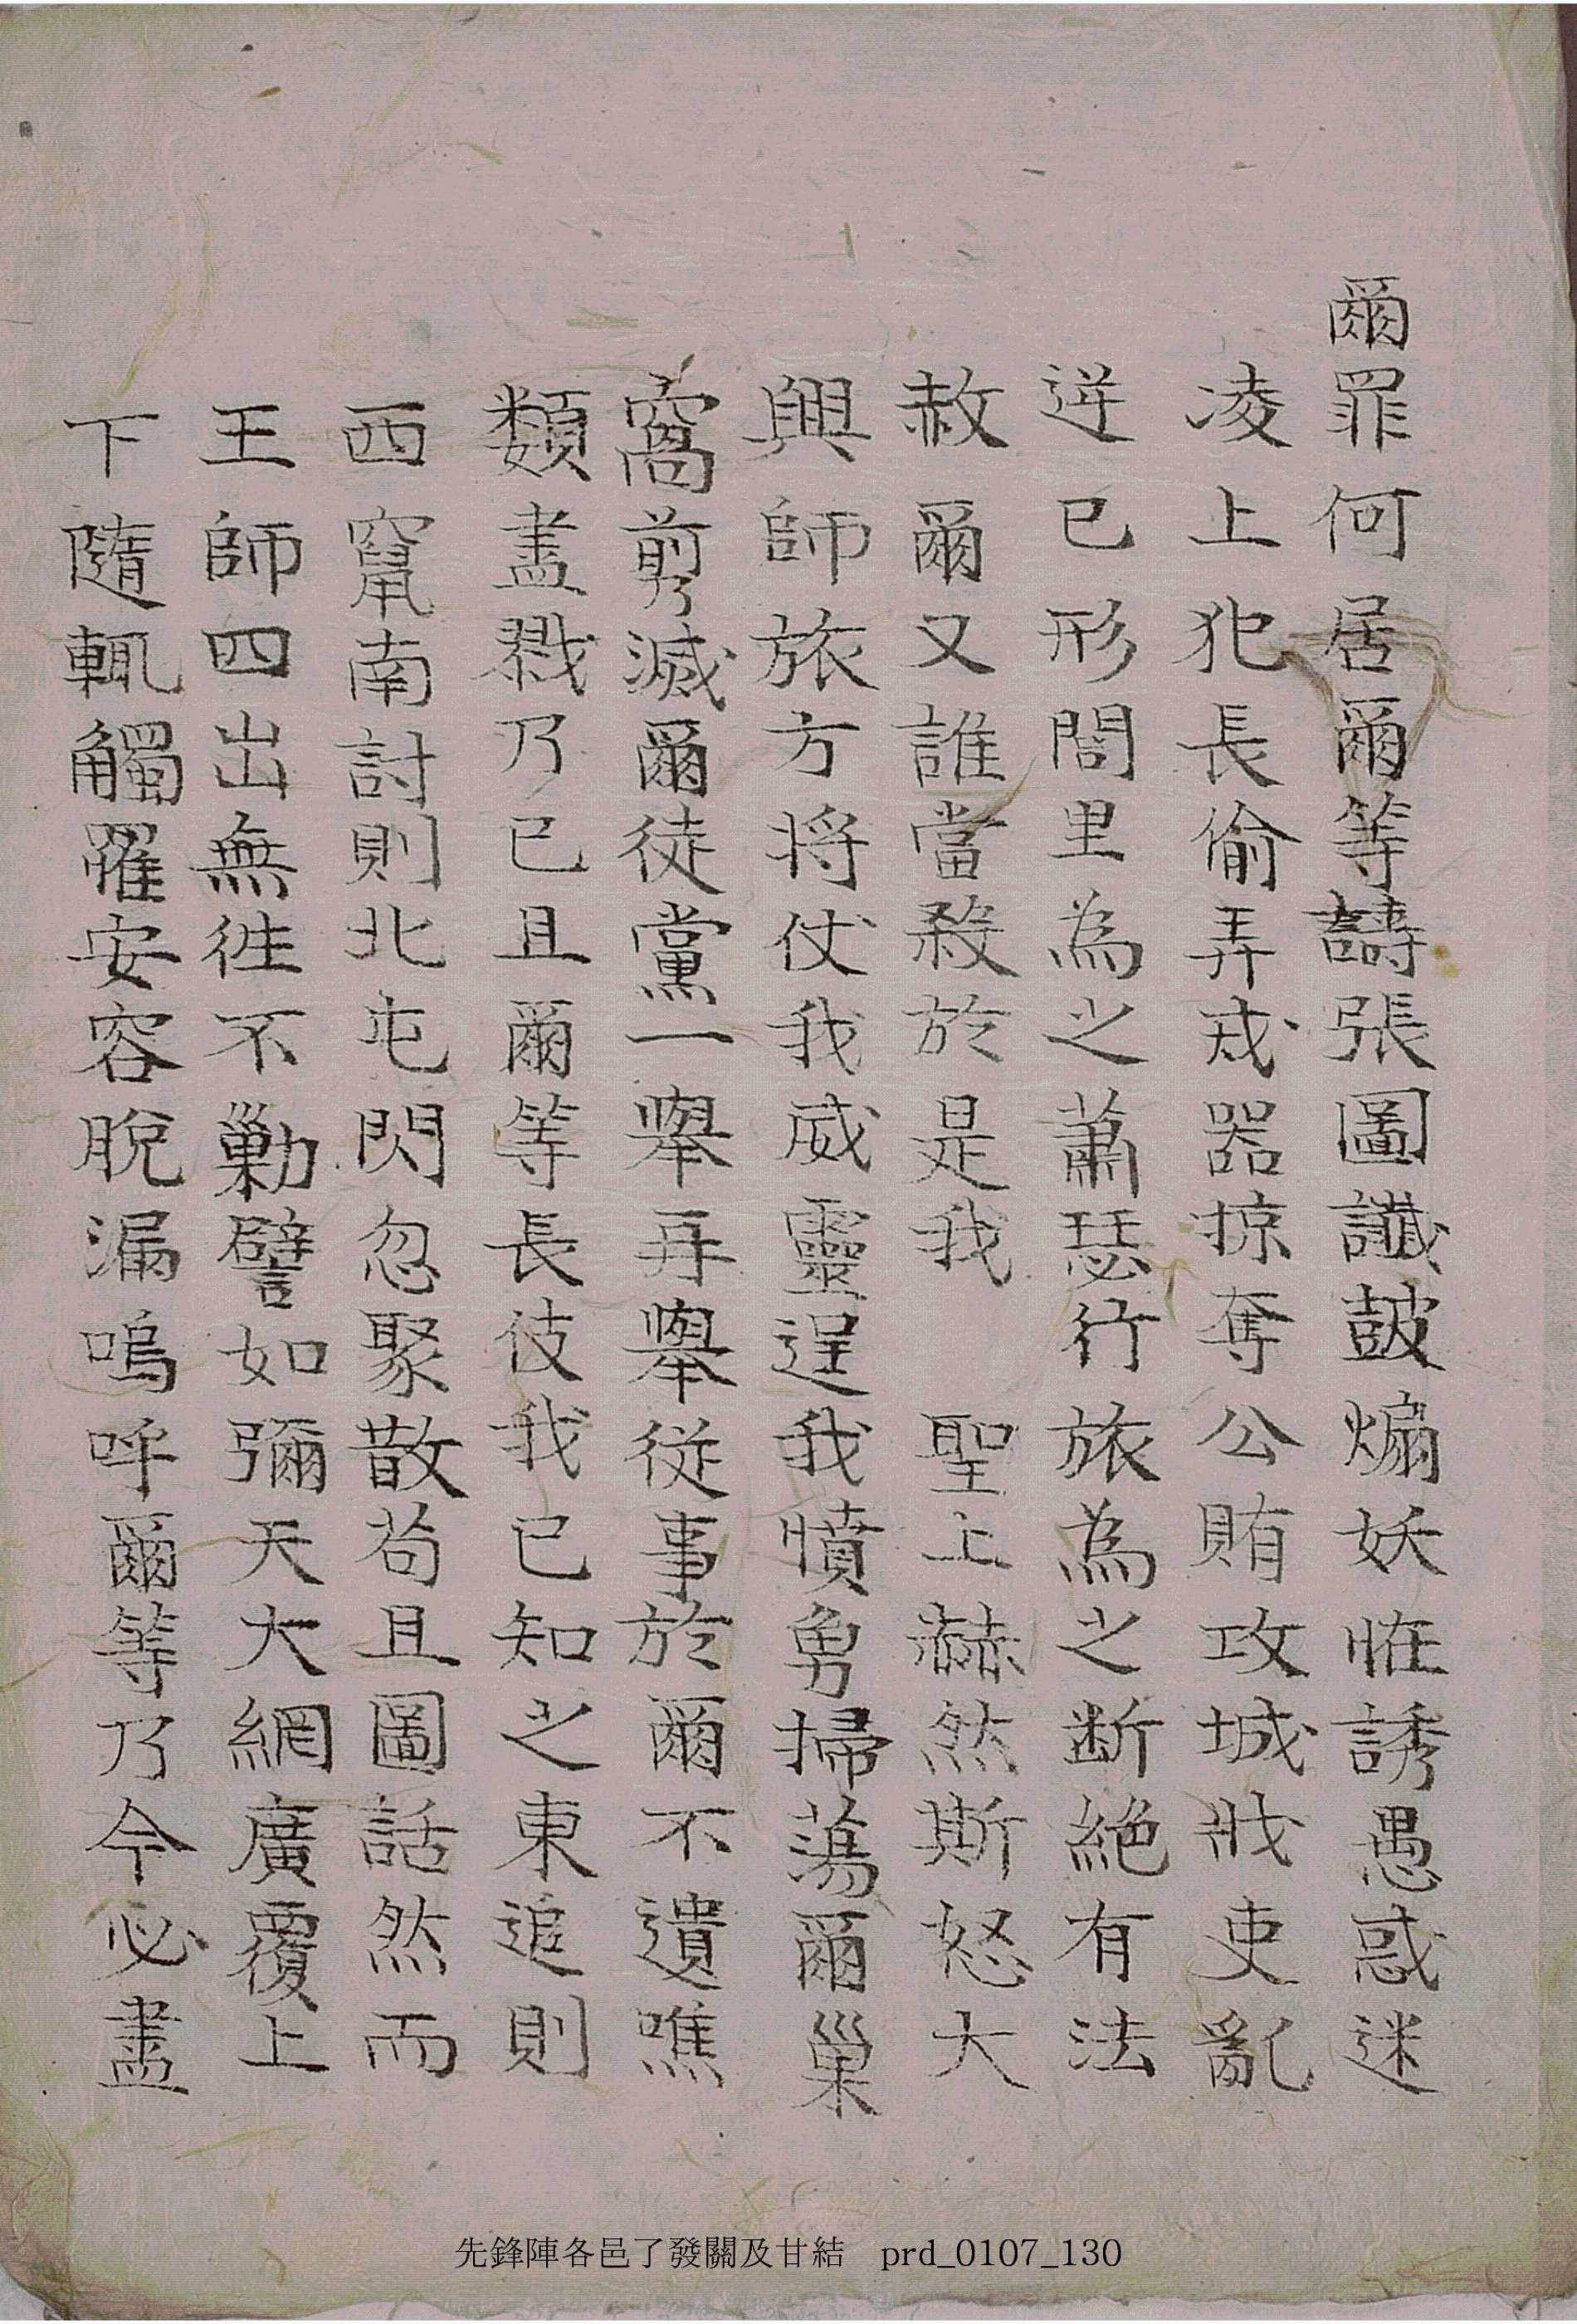 爾罪何居爾等譸張圖讖皷煽妖恠誘愚惑迷
凌上犯長偷弄戎器掠奪公賄攻城戕吏亂
逆已形閭里為之蕭瑟行旅為之断絕有法
赦爾又誰當殺於是我 聖上赫然斯怒大
興師旅方将仗我威靈逞我憤勇掃蕩爾巢
窩剪滅爾徒黨一擧再擧從事於爾不遺噍
類盡戮乃已且爾等長伎我已知之東追則
西竄南討則北屯閃忽聚散苟且圖話然而
王師四出無徃不勦譬如彌天大網廣覆上
下隨輒觸羅安容脫漏嗚呼爾等乃今必盡
先鋒陣各邑了發關及甘結 prd_0107_130